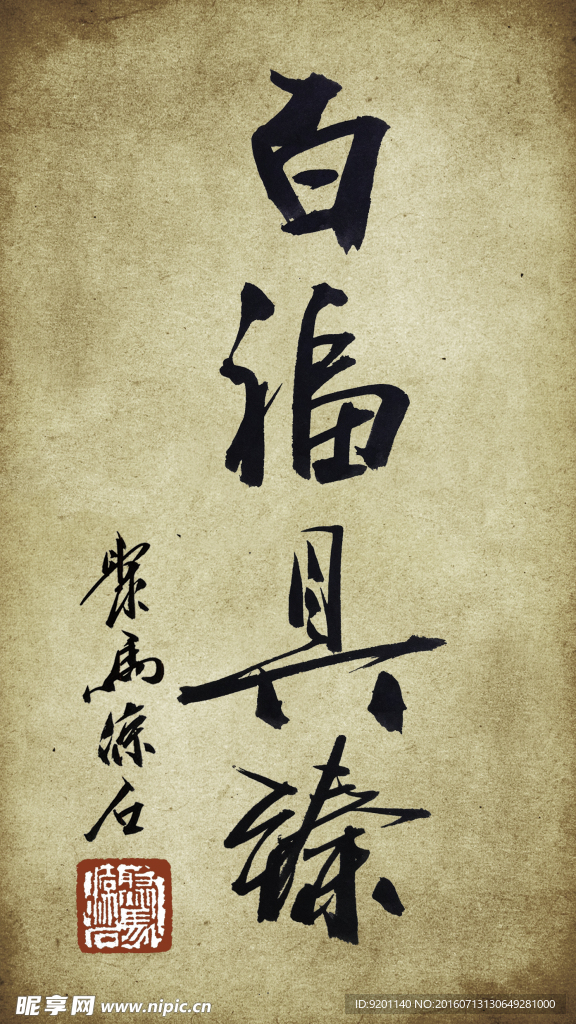 百福具臻
聚馬涼石
昵享网 www.nipic.cn
ID:9201140 NO:20160713130649281000